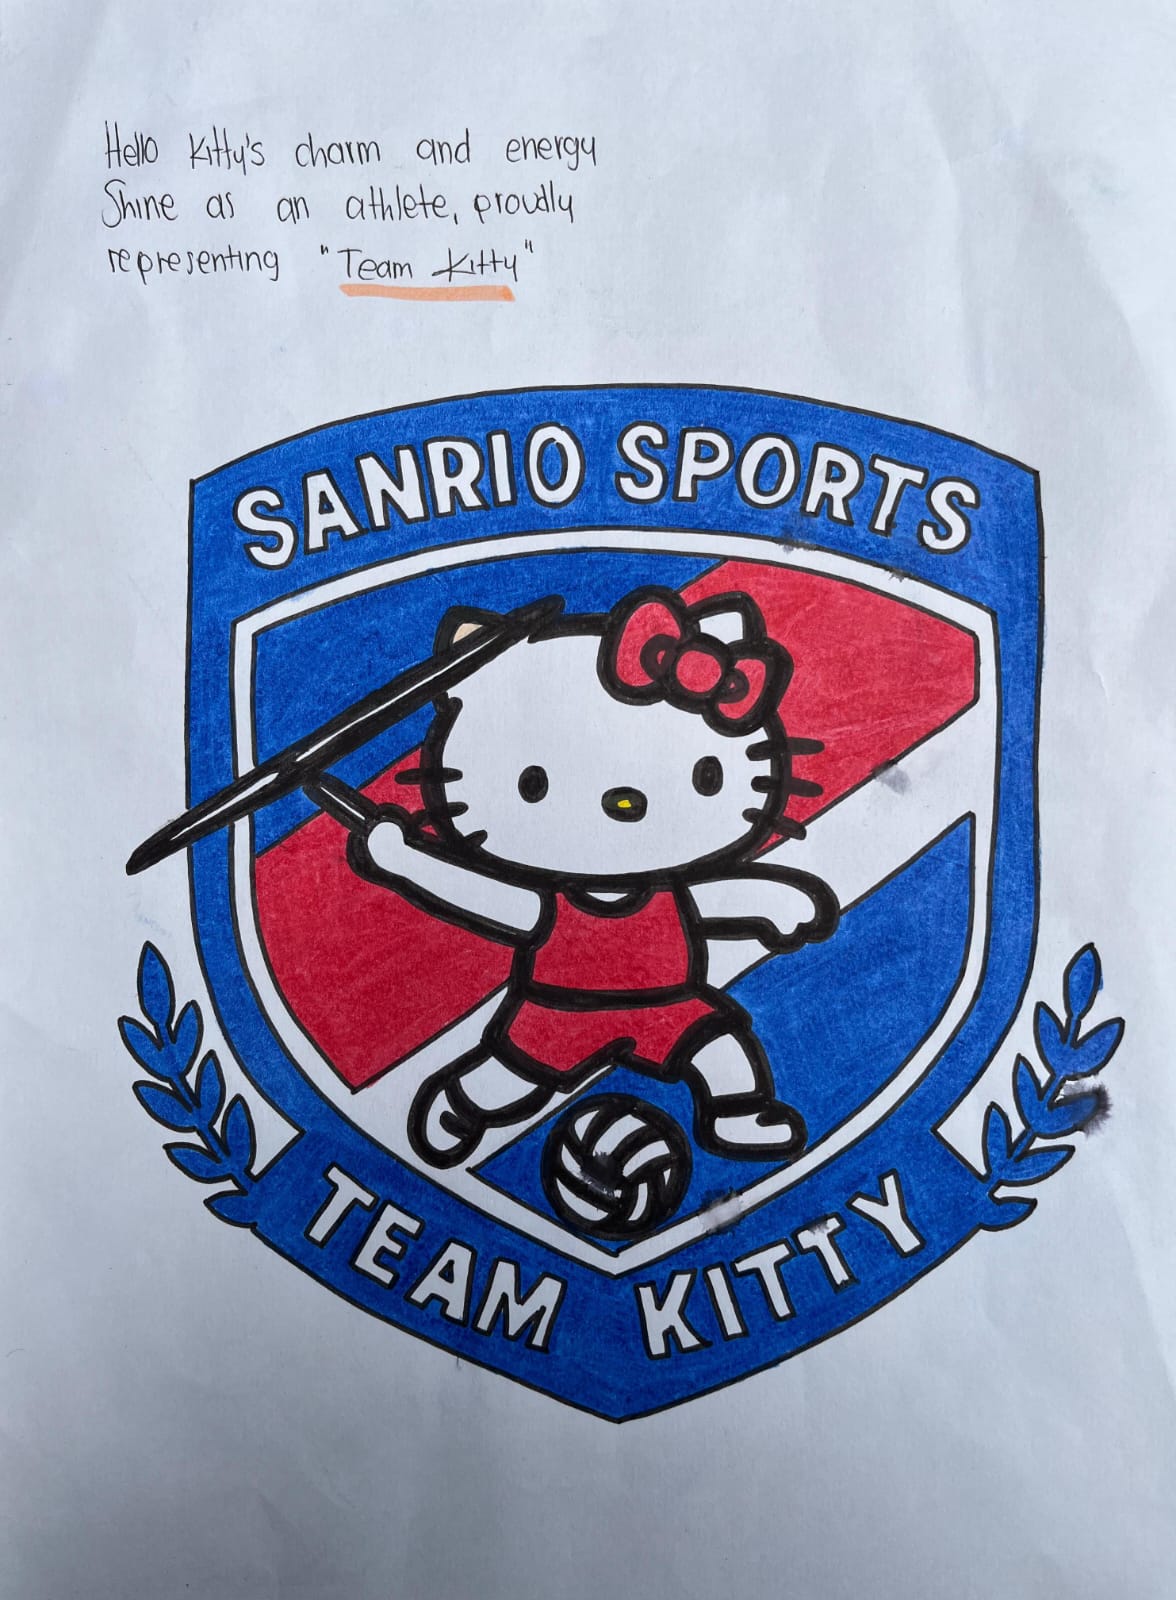 Hello Kitty's charm and energy
Shine as an athlete, proudly
representing "Team Kitty"
SANRIO SPORTS
TEAM KITTY